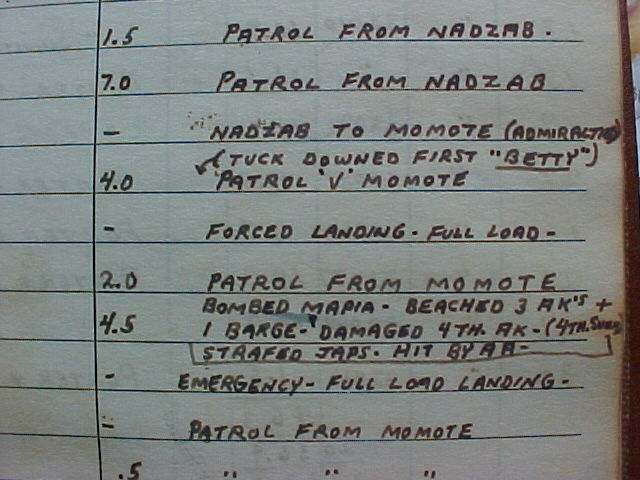 1.5 PATROL FROM NADZAB.
7.0 PATROL FROM NADZAB
- NADZAB TO MOMOTE (ADMIRALTIES)
(TUCK DOWNED FIRST "BETTY")
4.0 PATROL 'V' MOMOTE
- FORCED LANDING - FULL LOAD -
2.0 PATROL FROM MOMOTE
BOMBED MAPIA - BEACHED 3 AK'S +
4.5 1 BARGE - DAMAGED 4TH. AK - (4TH.
STRAFED JAPS. HIT BY AA -
- EMERGENCY - FULL LOAD LANDING -
- PATROL FROM MOMOTE
.5 " " "